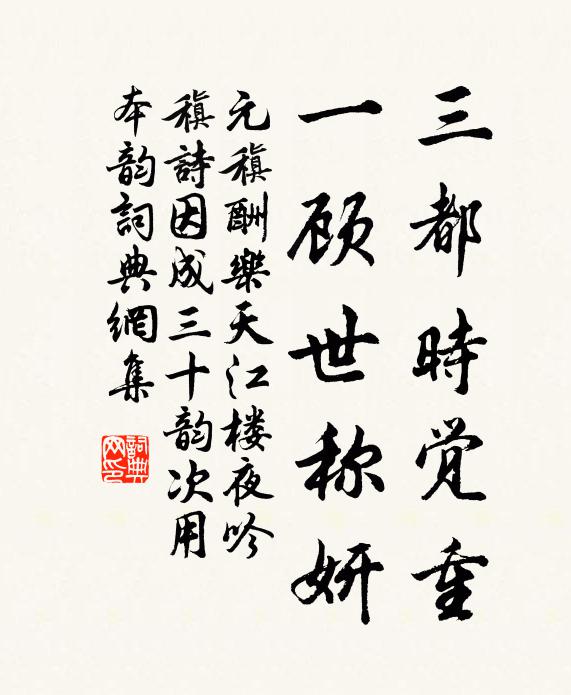 三都時覺重
一顾世称妍
元稹酬樂天江楼夜吟
稹詩因成三十韵次用
本韵詞典網集
詞典网印